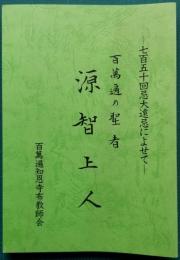 ―七百五十回忌大遠忌によせて―
百萬遍の聖者
源智上人
百萬遍知恩寺布教師会